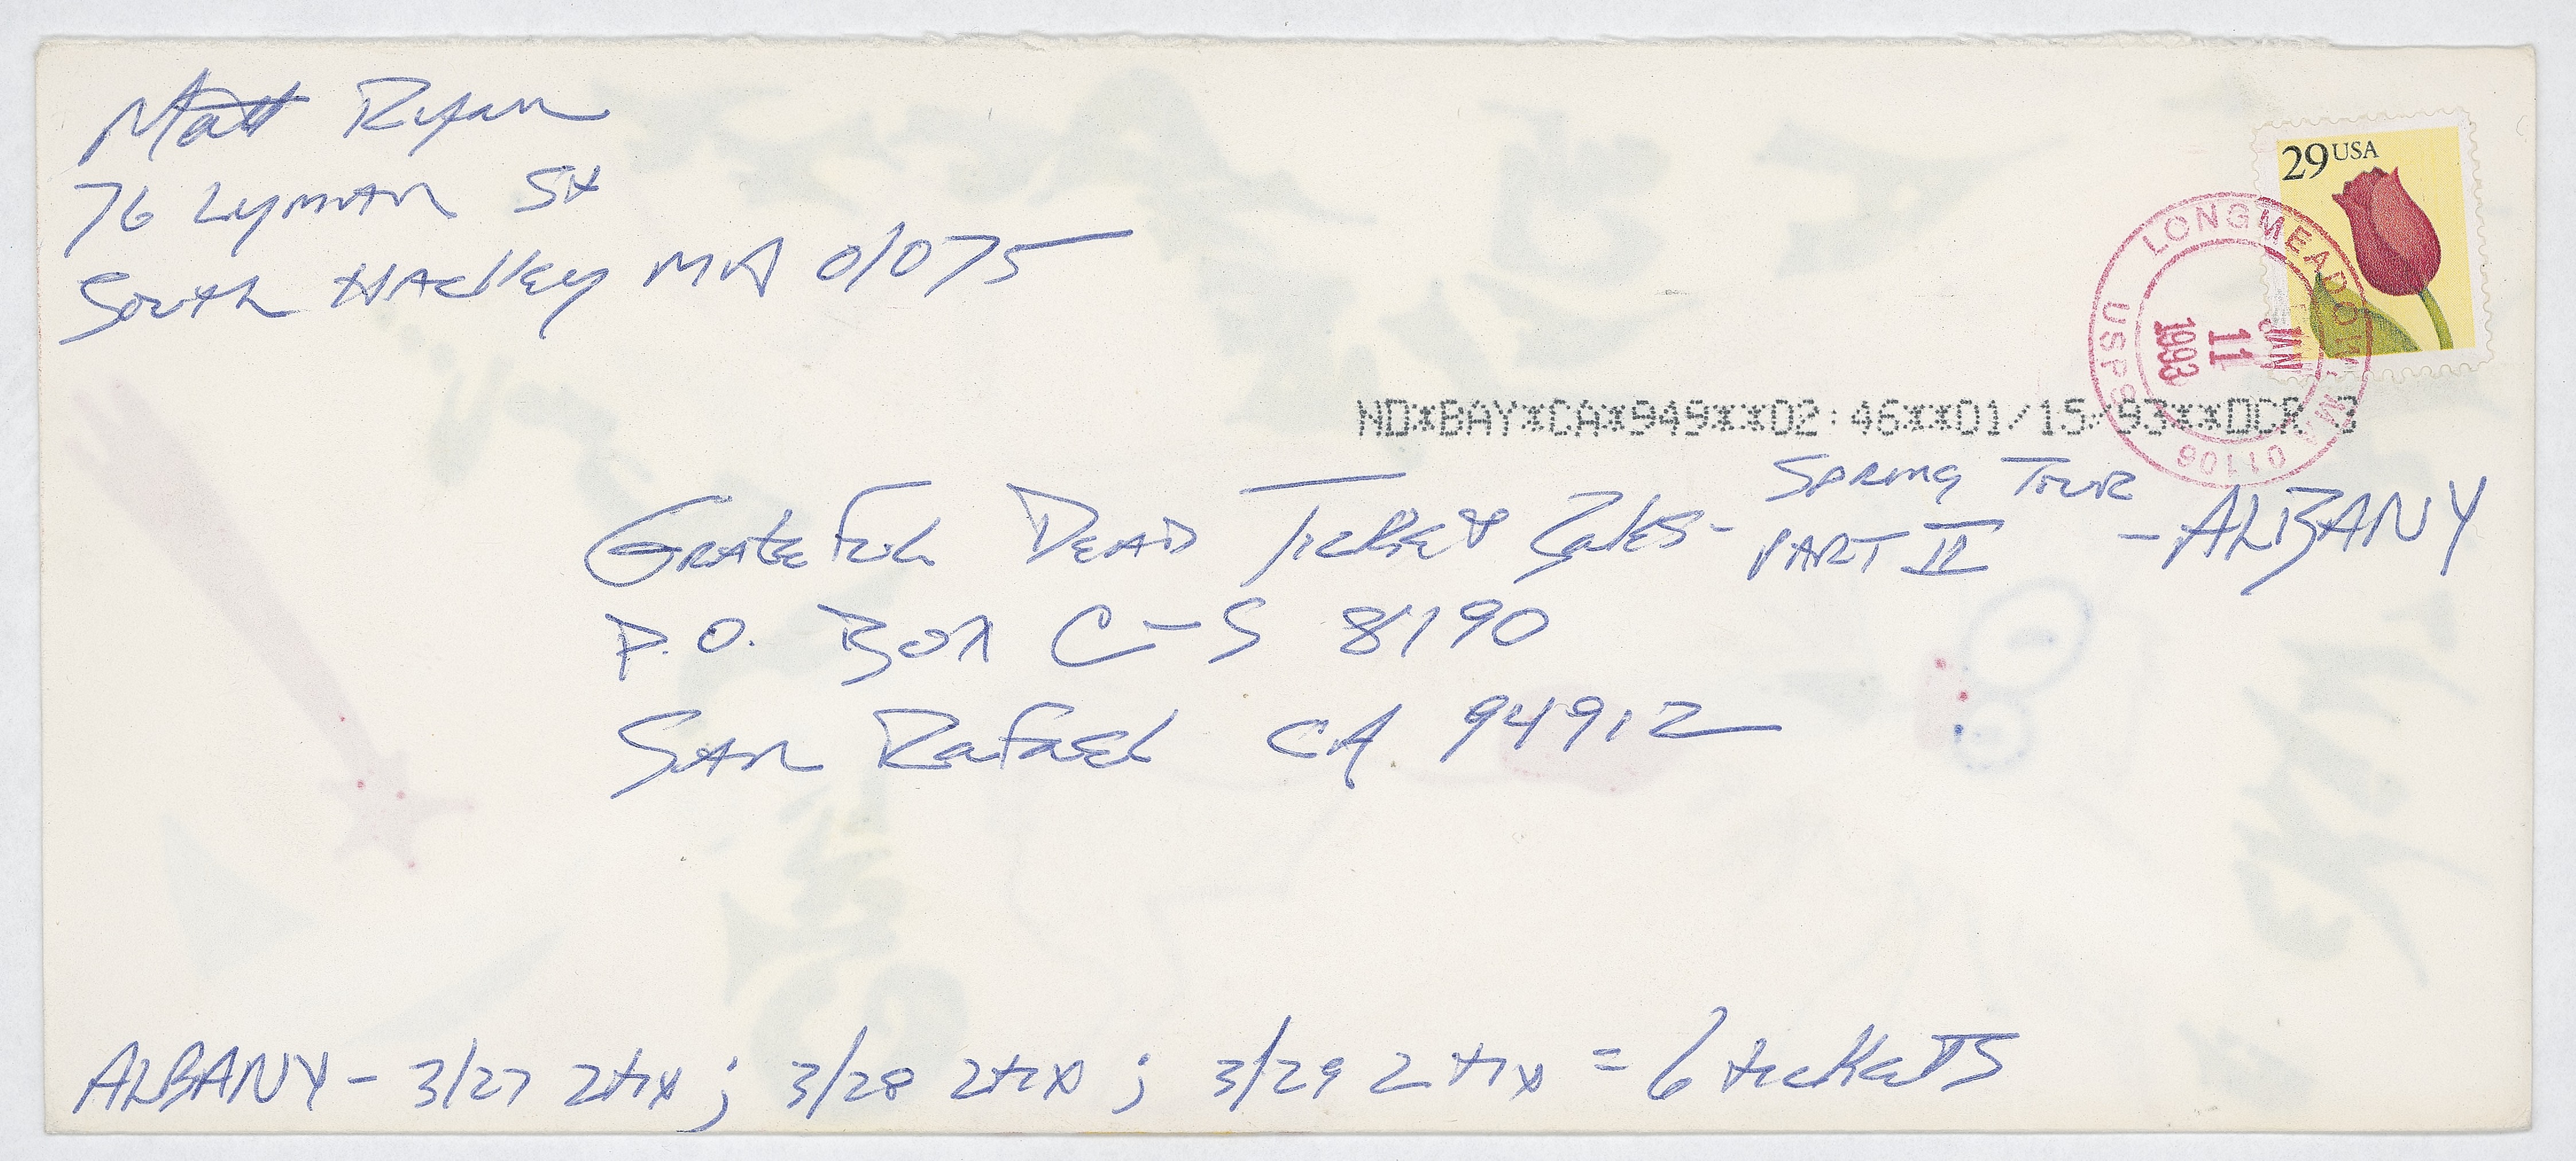 Matt Ryan
76 Lyman St
South Hadley MA 01075
29 USA
LONGMEADOW MA 01106
USPS
JAN
11
1993
ND*BAY*CA*949**02:46**01/15/93**DCR 3
Grateful Dead Ticket Sales - Spring Tour PART II - ALBANY
P.O. Box C-S 8190
San Rafael CA 94912
ALBANY - 3/27 2tix ; 3/28 2tix ; 3/29 2 tix = 6 tickeTS